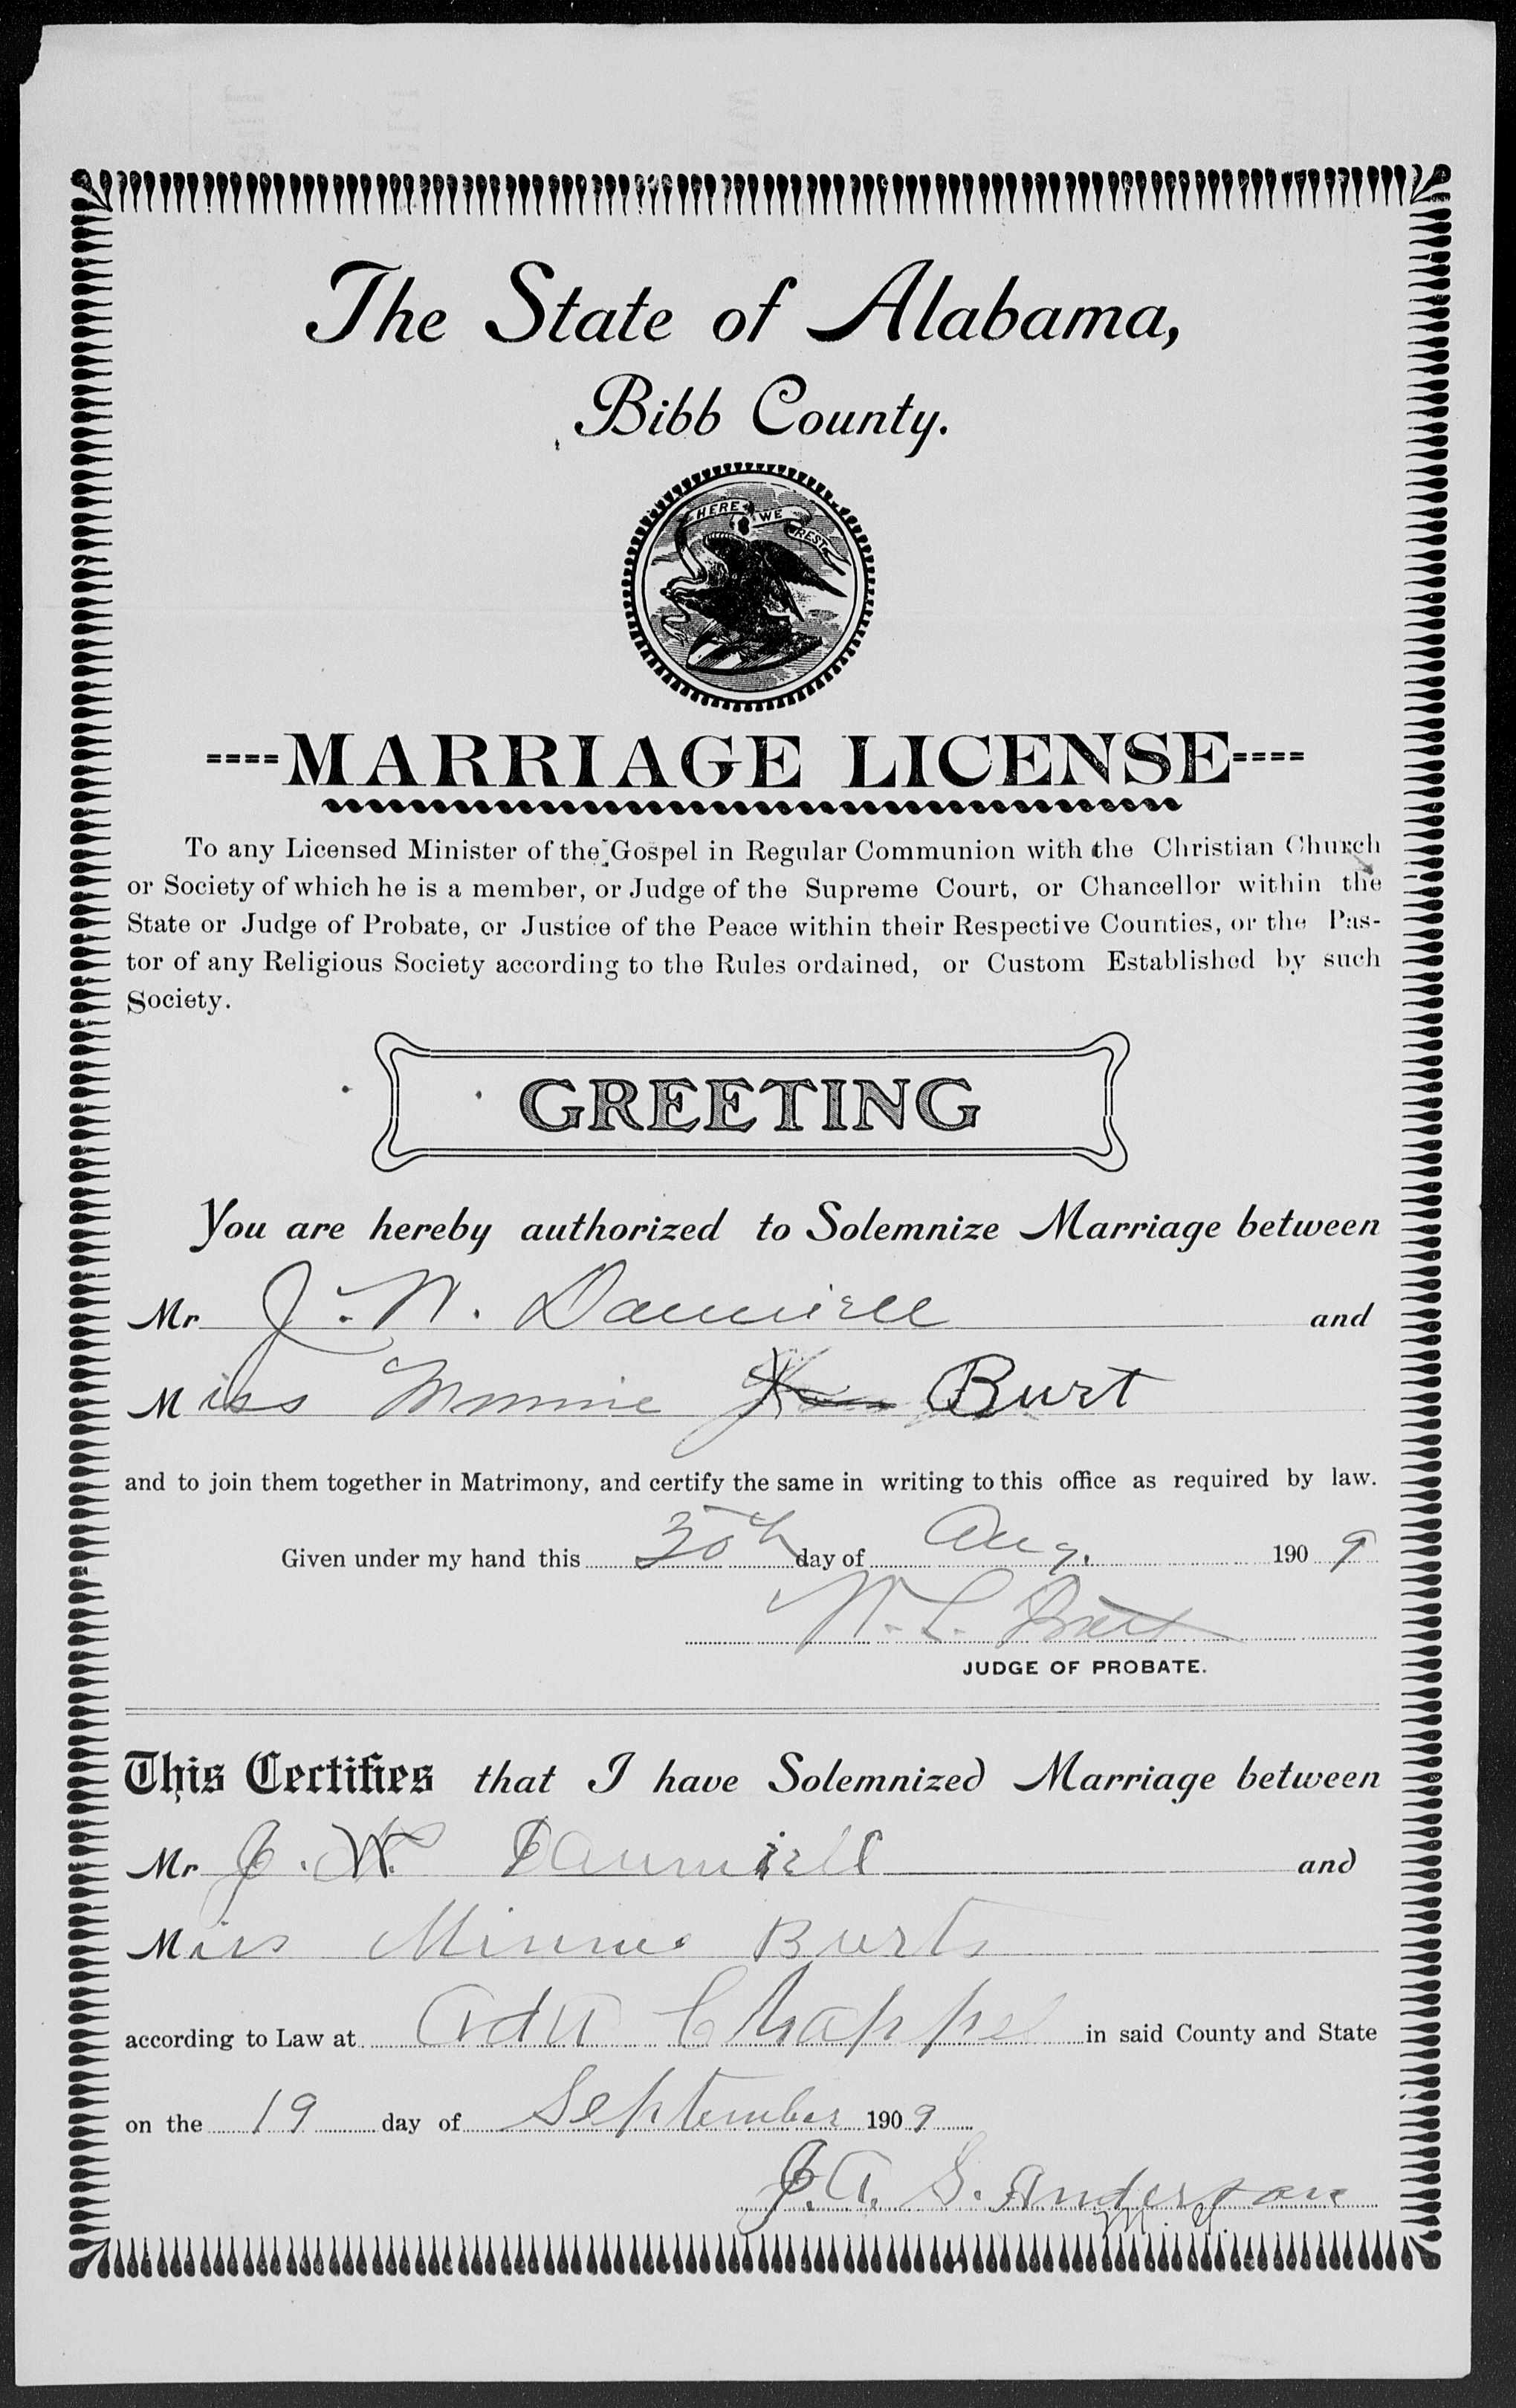 The State of Alabama,
Bibb County.
HERE WE REST
MARRIAGE LICENSE
To any Licensed Minister of the Gospel in Regular Communion with the Christian Church
or Society of which he is a member, or Judge of the Supreme Court, or Chancellor within the
State or Judge of Probate, or Justice of the Peace within their Respective Counties, or the Pas-
tor of any Religious Society according to the Rules ordained, or Custom Established by such
Society.
GREETING
You are hereby authorized to Solemnize Marriage between
Mr J. W. Danniell and
Miss Minnie Burt
and to join them together in Matrimony, and certify the same in writing to this office as required by law.
Given under my hand this 30th day of Aug. 1909
W. L. Pratt
JUDGE OF PROBATE.
This Certifies that I have Solemnized Marriage between
Mr J. W. Danniell and
Miss Minnie Burts
according to Law at Ada Chappel in said County and State
on the 19 day of September 1909
J. A. S. Anderson
M. G.